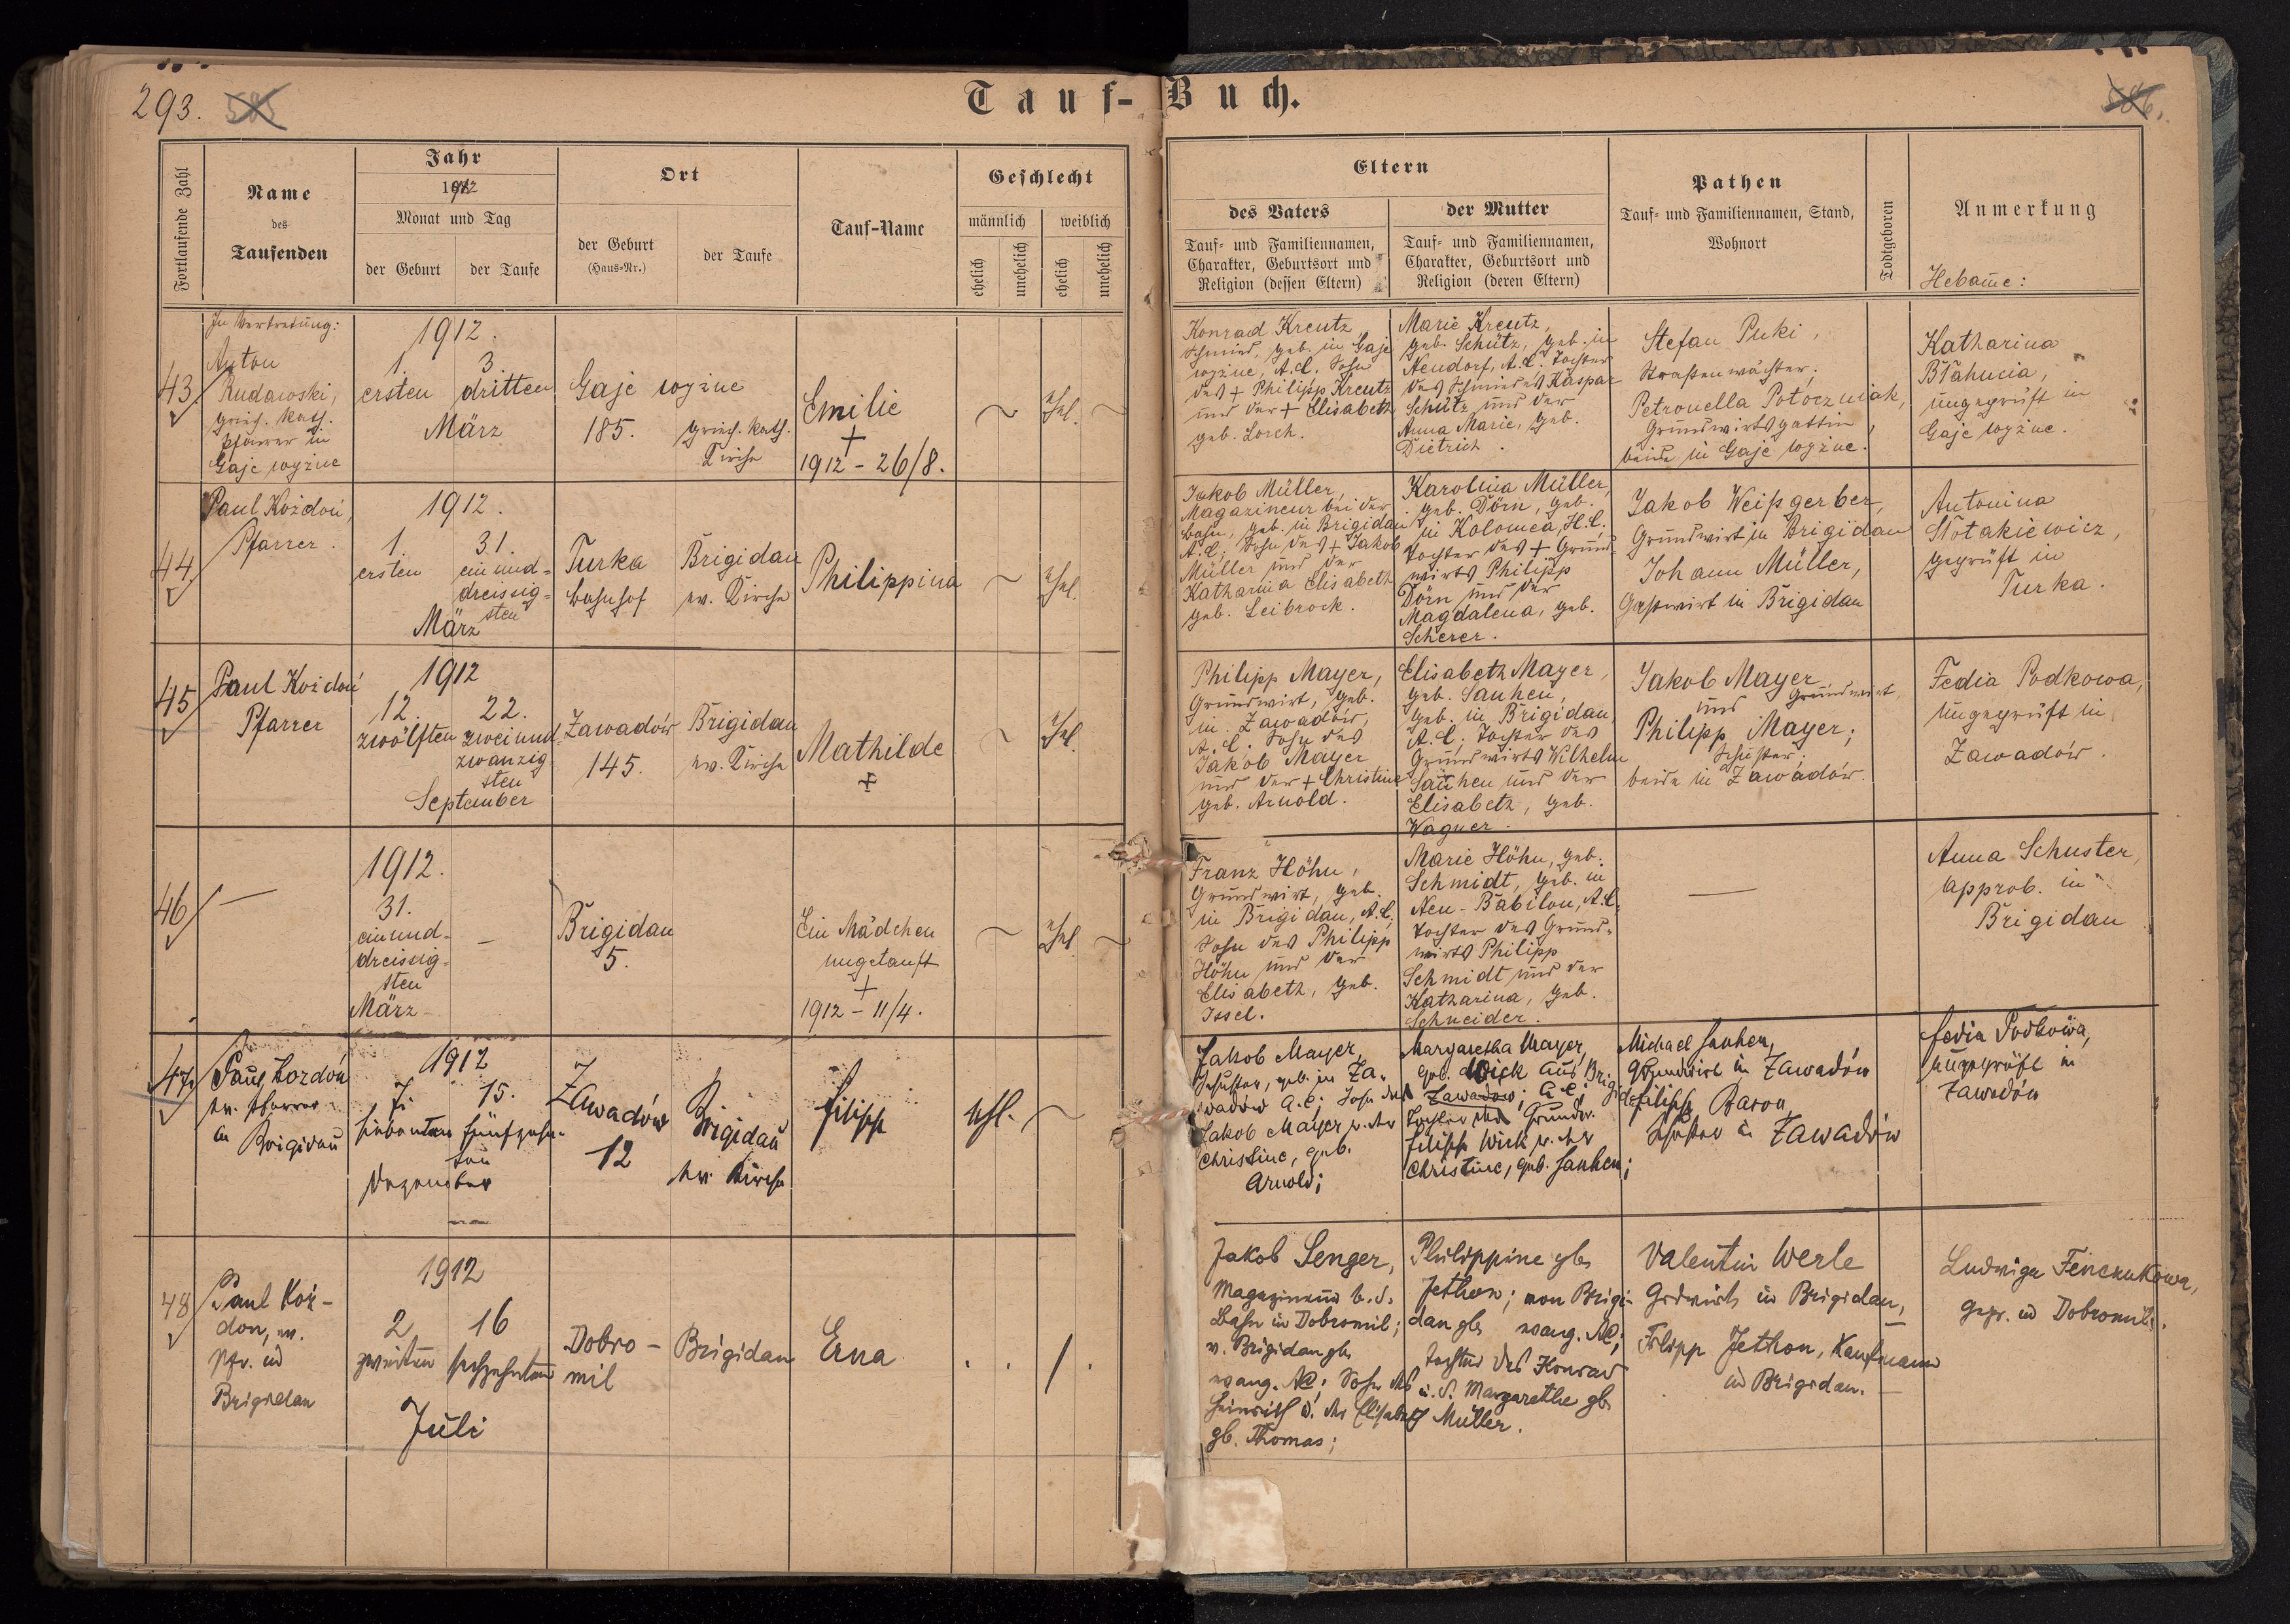 293. 585
Tauf-Buch.
586.
Fortlaufende Zahl
Name
des
Taufenden
Jahr
1912
Monat und Tag
der Geburt
der Taufe
Ort
der Geburt
(Haus-Nr.)
der Taufe
Tauf-Name
Geschlecht
männlich
weiblich
ehelich
unehelich
ehelich
unehelich
Eltern
des Vaters
Tauf- und Familiennamen,
Charakter, Geburtsort und
Religion (dessen Eltern)
der Mutter
Tauf- und Familiennamen,
Charakter, Geburtsort und
Religion (deren Eltern)
Pathen
Tauf- und Familiennamen, Stand,
Wohnort
Todtgeboren
Anmerkung
Hebame:
43
In Vertretung:
Anton
Rudawski,
griech. kath.
Pfarrer in
Gaje wyżne
1912.
1. 3.
ersten dritten
März
Gaje wyżne
185.
griech. kath.
Kirche
Emilie
+
1912 - 26/8.
ehel.
Konrad Kreutz
Schmied, geb. in Gaje
wyżne, A.C. Sohn
des + Philipp Kreutz
und der + Elisabeth
geb. Lorch.
Marie Kreutz,
geb. Schütz, geb. in
Neudorf, A.C. Tochter
des Schmiedes Kaspar
Schütz und der
Anna Marie, geb.
Dietrich.
Stefan Puki,
Strassenwächter;
Petronella Potoczniak,
Grundwirtsgattin,
beide in Gaje wyżne.
Katharina
Błahucia,
ungeprüft in
Gaje wyżne.
44.
Paul Kożdoń,
Pfarrer.
1912.
1. 31.
ersten einund-
dreissig-
sten
März
Turka
Bahnhof
Brigidau
ev. Kirche
Philippina
ehel.
Jakob Müller,
Magazineur bei der
Bahn, geb. in Brigidau
A.C. Sohn des + Jakob
Müller und der
Katharina Elisabeth
geb. Leibrock.
Karolina Müller,
geb. Dörn, geb.
in Kolomea, H.C.
Tochter des + Grund-
wirts Philipp
Dörn und der
Magdalena, geb.
Scherer.
Jakob Weißgerber,
Grundwirt in Brigidau
Johann Müller,
Gastwirt in Brigidau
Antonina
Słotakiewicz,
geprüft in
Turka.
45
Paul Kożdoń
Pfarrer
1912
12. 22.
zwölften zweiund
zwanzig
sten
September
Zawadów
145.
Brigidau
ev. Kirche
Mathilde
+
ehel.
Philipp Mayer,
Grundwirt, geb.
in Zawadów,
A.C. Sohn des
Jakob Mayer
und der + Christine
geb. Arnold.
Elisabeth Mayer,
geb. Sauhen,
geb. in Brigidau,
A.C. Tochter des
Grundwirts Wilhelm
Sauhen und der
Elisabeth, geb.
Wagner.
Jakob Mayer
und Grundwirt,
Philipp Mayer;
Schuster;
beide in Zawadów.
Fedia Podkowa,
ungeprüft in
Zawadów.
46
—
1912.
31.
einund-
dreissig-
sten
März
—
Brigidau
5.
Ein Mädchen
ungetauft
+
1912 - 11/4.
ehel.
Franz Höhn,
Grundwirt, geb.
in Brigidau, A.C.
Sohn des Philipp
Höhn und der
Elisabeth, geb.
Issel.
Marie Höhn, geb.
Schmidt, geb. in
Neu-Babilon, A.C.
Tochter des Grund-
wirts Philipp
Schmidt und der
Katharina, geb.
Schneider.
—
Anna Schuster,
approb. in
Brigidau
47
Paul Kozdoń
ev. Pfarrer
in Brigidau
1912
7. 15.
siebenten fünfzehn-
ten
Dezember
Zawadów
12
Brigidau
ev. Kirche
Filipp
ehl.
Jakob Mayer,
Schuster, geb. in Za-
wadów A.C. Sohn des
Jakob Mayer u. der
Christine, geb.
Arnold;
Margaretha Mayer,
geb. Wick aus Brigidau
Zawadów; A.C.
Tochter des Grundw.
Filipp Wick u. der
Christine, geb. Sauhen;
Michael Sauhen,
Grundwirt in Zawadów
Filipp Baron,
Schuster in Zawadów
Fedia Podkowa,
ungeprüft in
Zawadów
48
Paul Koż-
don, ev.
Pfr. in
Brigidau
1912
2 16
zweiten sechzehnten
Juli
Dobro-
mil
Brigidau
Erna
Jakob Senger,
Magazineur b. d.
Bahn in Dobromil;
v. Brigidau gb.
evang. AC; Sohn des
Heinrich u. der Elisabeth
gb. Thomas;
Philippine gb.
Jethon; von Brigi-
dau gb. evang. AC;
Tochter des Konrad
u. d. Margarethe gb.
Müller.
Valentin Werle
Grdwirt in Brigidau,
Filipp Jethon, Kaufmann
in Brigidau.
Ludwiga Fenczukowa,
gepr. in Dobromil.